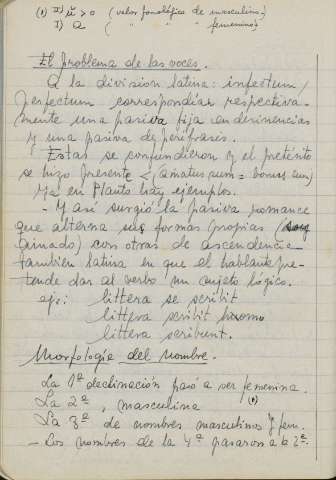 (1) II) ŭ > o (valor fonológico de masculino)
I) a ( " " " femenino)
El problema de las voces.
A la división latina: infectum/
perfectum correspondían respectiva-
mente una pasiva fija en desinencias
y una pasiva de perífrasis.
Estas se confundieron y el pretérito
se hizo presente < (amatus sum = bonus sum)
Ya en Plauto hay ejemplos.
- Y así surgió la pasiva romance
que alterna sus formas propias (soy
amado) con otras de ascendencia
también latina en que el hablante pre-
tende dar al verbo un sujeto lógico.
ej.: littera se scribit
littera scribit homo
littera scribunt.
Morfología del nombre.
La 1ª declinación pasó a ser femenina.
La 2ª, masculina (1)
La 3ª de nombres masculinos y fem.
- Los nombres de la 4ª pasaron a la 2ª.